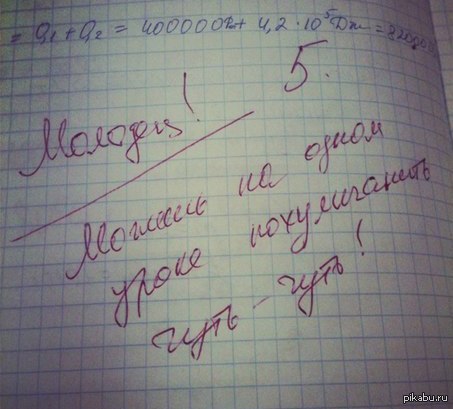 = Q₁ + Q₂ = 400000Дж + 4,2 · 10⁵ Дж = 82000
Молодец! 5.
Можешь на одном
уроке похулиганить
чуть-чуть!
pikabu.ru